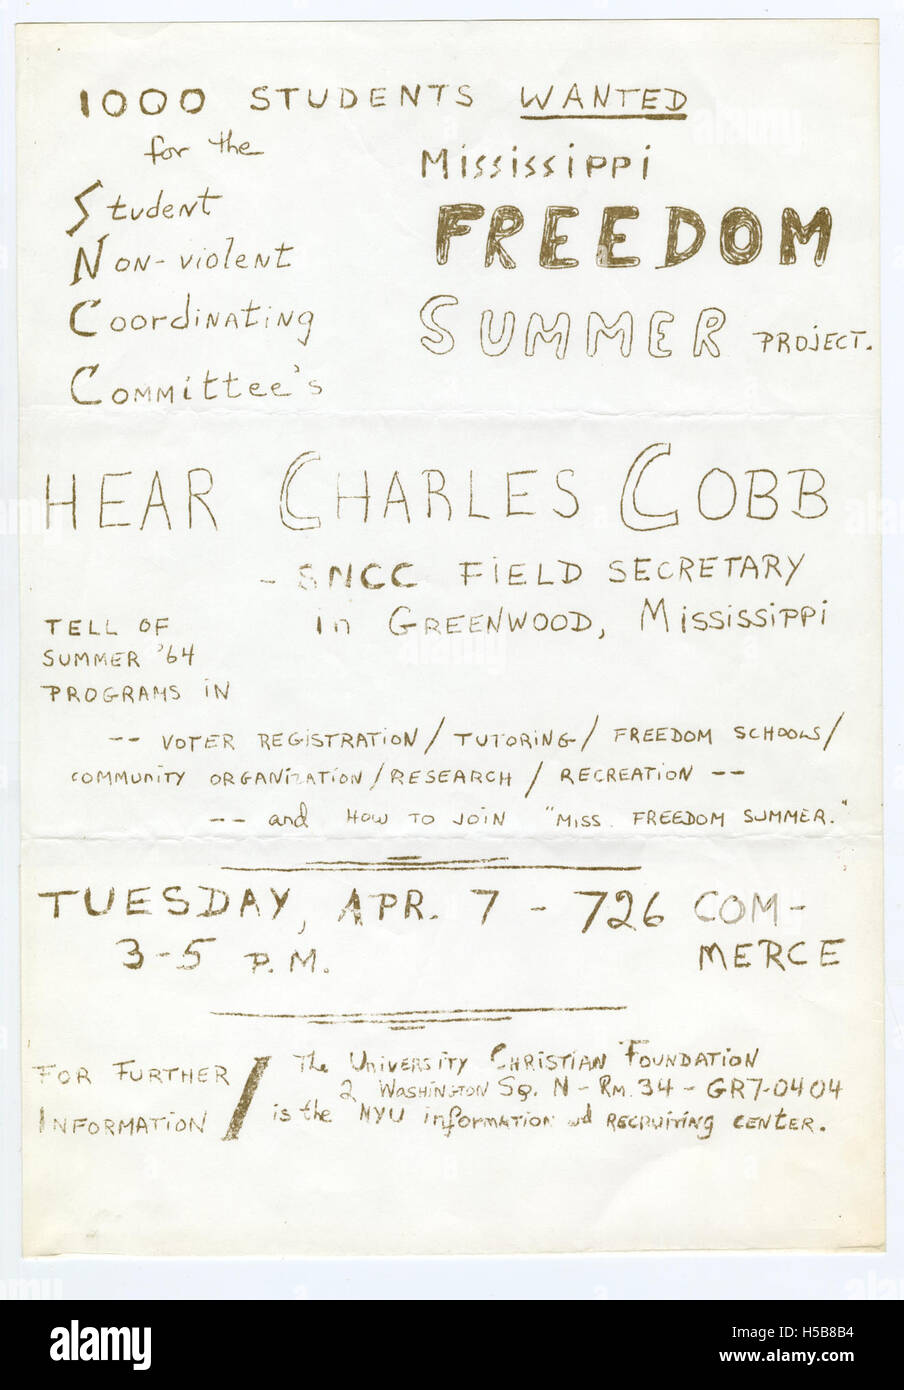 1000 STUDENTS WANTED
for the
Student
Non-violent
Coordinating
Committee's
Mississippi
FREEDOM
SUMMER PROJECT.
HEAR CHARLES COBB
- SNCC FIELD SECRETARY
in GREENWOOD, Mississippi
TELL OF
SUMMER '64
PROGRAMS IN
-- VOTER REGISTRATION / TUTORING / FREEDOM SCHOOLS /
COMMUNITY ORGANIZATION / RESEARCH / RECREATION --
-- and HOW TO JOIN "MISS. FREEDOM SUMMER."
TUESDAY, APR. 7 - 726 COM-
3-5 P.M. MERCE
FOR FURTHER
INFORMATION
The University Christian Foundation
2 Washington Sq. N - Rm. 34 - GR7-0404
is the NYU information and recruiting center.
alamy
Image ID: H5B8B4
www.alamy.com